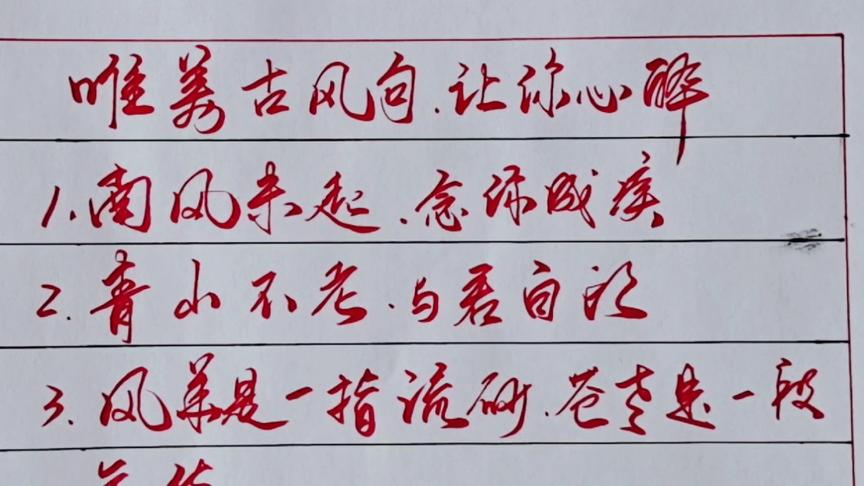 唯美古风句.让你心醉
1.南风未起.念你成疾
2.青山不老.与君白头
3.风华是一指流砂.苍老是一段